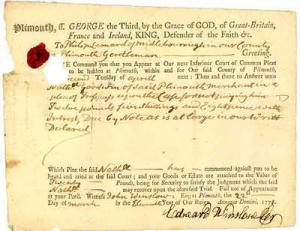 Plimouth, ss. GEORGE the Third, by the Grace of GOD, of Great-Britain,
France and Ireland, KING, Defender of the Faith &c.
To Philip Leonard of Middleborough in our County
of Plimouth Gentleman Greeting.
WE Command you that you Appear at Our next Inferiour Court of Common Pleas
to be holden at Plimouth, within and for our said County of Plimouth, on the
second Tuesday of April next Then and there to Answer unto
Nathll Goodwin of said Plimouth merchant in a
plea of Trespass upon the Case for not paying him
Twelve pounds five shillings and Eight pence with
Interest, Due by Note, as is at large in our Writt
Declared
Which Plea the said Nathll hath commenced against you to be
heard and tried at the said Court; and your Goods or Estate are attached to the Value of
Pounds, being for Security to satisfy the Judgment which the said
Nathll may recover upon the aforesaid Trial. Fail not of Appearance
at your Peril. Witness John Winslow Esq; at Plimouth, the 22d
Day of March in the Year of our Reign. Annoque Domini, 177
Edward Winslow Cler